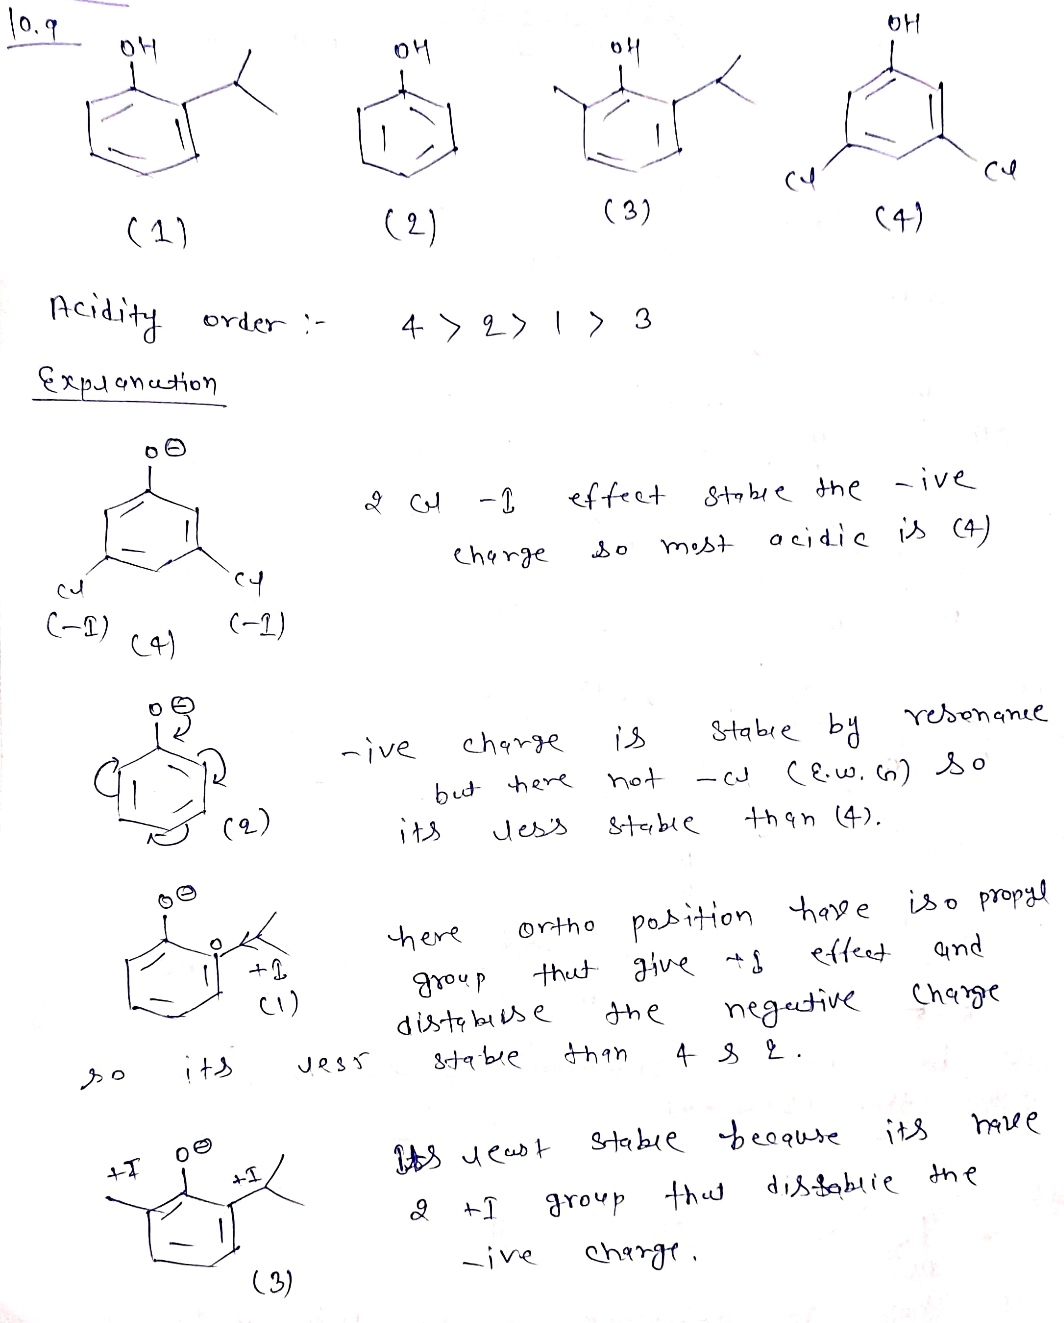 10.9
OH OH OH OH
Cl Cl
(1) (2) (3) (4)
Acidity order :- 4 > 2 > 1 > 3
Explanation
O⊖
2 Cl -I effect stable the -ive
charge so most acidic is (4)
Cl Cl
(-I) (4) (-I)
O⊖
-ive charge is stable by resonance
but here not -Cl (E.W.G) so
its less stable than (4).
(2)
O⊖
here ortho position have iso propyl
group that give +I effect and
+I
(1)
distablise the negative charge
so its less stable than 4 & 2.
O⊖
+I +I
Its least stable because its have
2 +I group that distablie the
-ive charge.
(3)